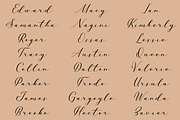 Edward Macy Ian
Samantha Nagini Kimberly
Roger Ossas Lessie
Tracy Austin Queen
Collin Dalton Valerie
Parker Fredo Ursula
James Gargoyle Wanda
Brooke Hector Xavier